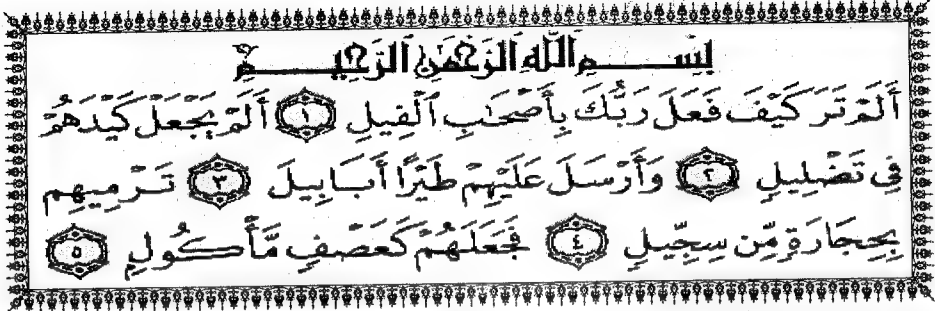 بِسْمِ ٱللَّهِ ٱلرَّحْمَٰنِ ٱلرَّحِيمِ
أَلَمْ تَرَ كَيْفَ فَعَلَ رَبُّكَ بِأَصْحَٰبِ ٱلْفِيلِ ١ أَلَمْ يَجْعَلْ كَيْدَهُمْ
فِى تَضْلِيلٍ ٢ وَأَرْسَلَ عَلَيْهِمْ طَيْرًا أَبَابِيلَ ٣ تَرْمِيهِم
بِحِجَارَةٍ مِّن سِجِّيلٍ ٤ فَجَعَلَهُمْ كَعَصْفٍ مَّأْكُولٍ ٥